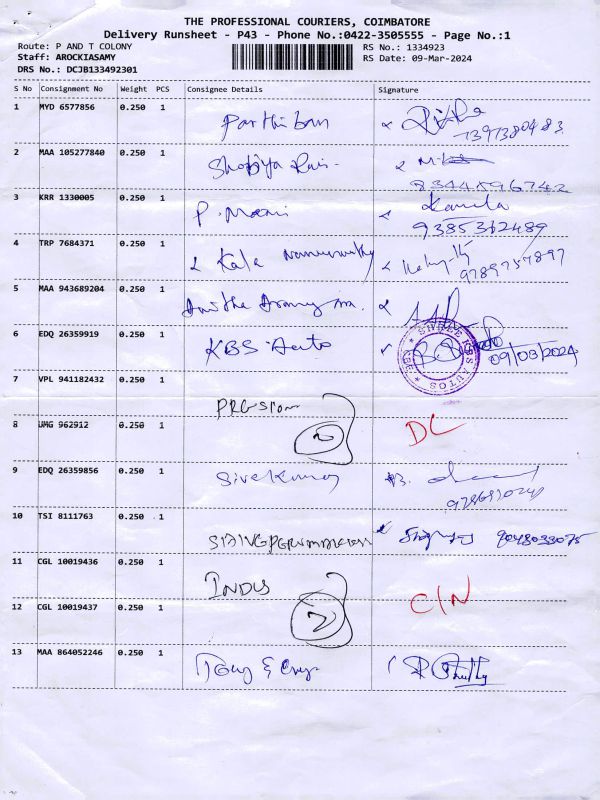 THE PROFESSIONAL COURIERS, COIMBATORE
Delivery Runsheet - P43 - Phone No.:0422-3505555 - Page No.:1
Route: P AND T COLONY RS No.: 1334923
Staff: AROCKIASAMY RS Date: 09-Mar-2024
DRS No.: DCJB133492301
S No Consignment No Weight PCS Consignee Details Signature
1 MYD 6577856 0.250 1 Parthiban
7397380483
2 MAA 105277840 0.250 1 Shobiya
8344596742
3 KRR 1330005 0.250 1 P. Mani Kamila
9385362489
4 TRP 7684371 0.250 1 Kala
9789757897
5 MAA 943689204 0.250 1 Anitha
6 EDQ 26359919 0.250 1 KBS Auto
09/03/2024
SHREE KBS AUTOS
CBE
7 VPL 941182432 0.250 1
2 DC
8 UMG 962912 0.250 1
9 EDQ 26359856 0.250 1 Sivakumar
10 TSI 8111763 0.250 1
9048033075
11 CGL 10019436 0.250 1 INDUS
2 C/N
12 CGL 10019437 0.250 1
13 MAA 864052246 0.250 1